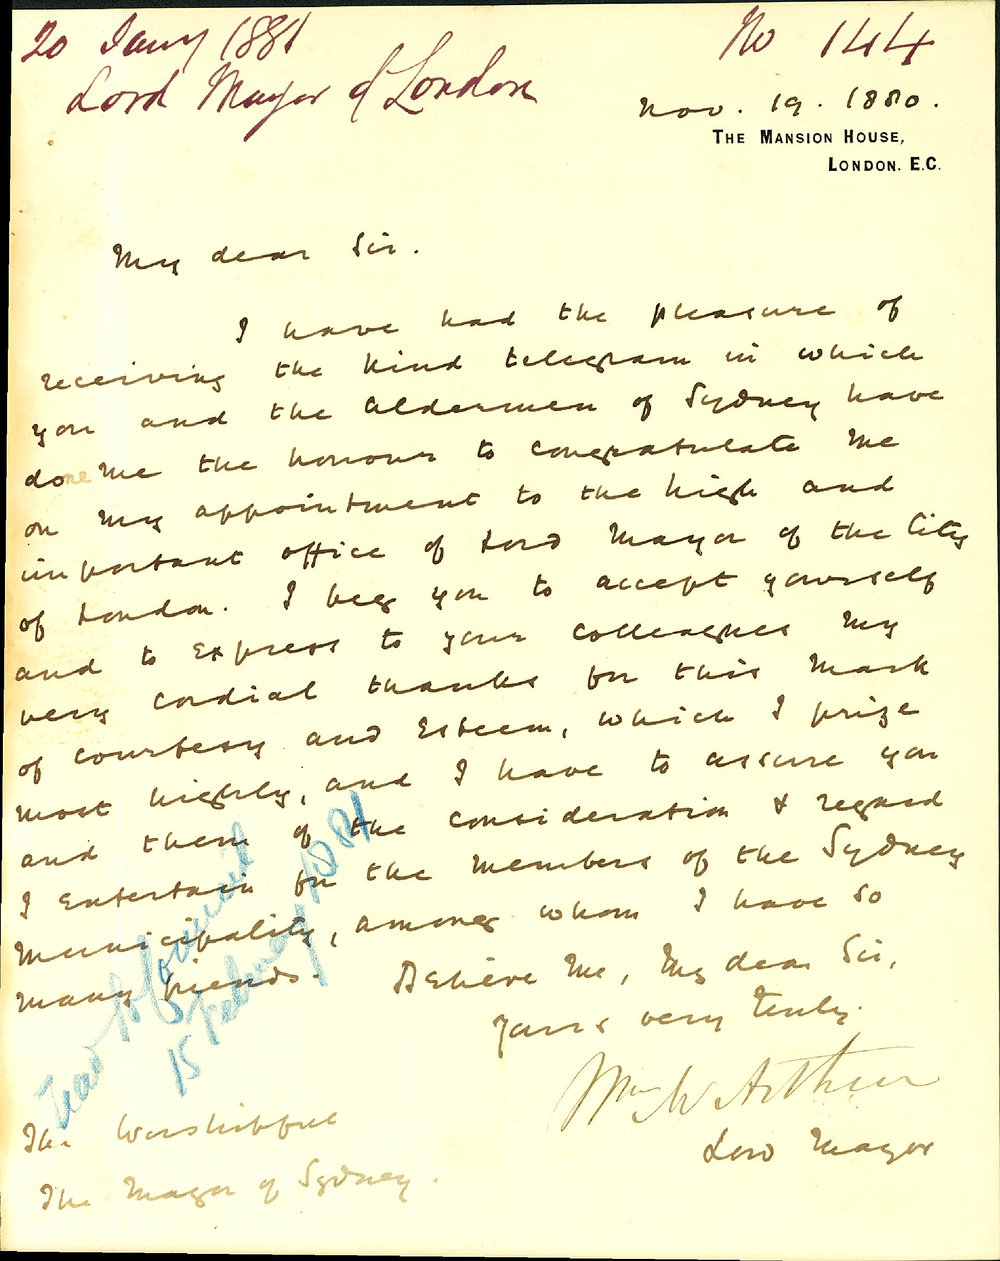 20 Jany 1881
No 144
Lord Mayor of London
Nov. 19. 1880.
THE MANSION HOUSE,
LONDON. E.C.
My dear Sir.
I have had the pleasure of
receiving the kind telegram in which
you and the Aldermen of Sydney have
done me the honour to congratulate me
on my appointment to the high and
important office of Lord Mayor of the City
of London. I beg you to accept yourself
and to express to your colleagues my
very cordial thanks for this mark
of courtesy and Esteem, which I prize
most highly, and I have to assure you
and them of the consideration & regard
I entertain for the members of the Sydney
Municipality, among whom I have so
many friends. Believe me, My dear Sir,
Yours very truly.
Wm McArthur
Lord Mayor
The Worshipful
The Mayor of Sydney.
Read to Council
15 February 1881